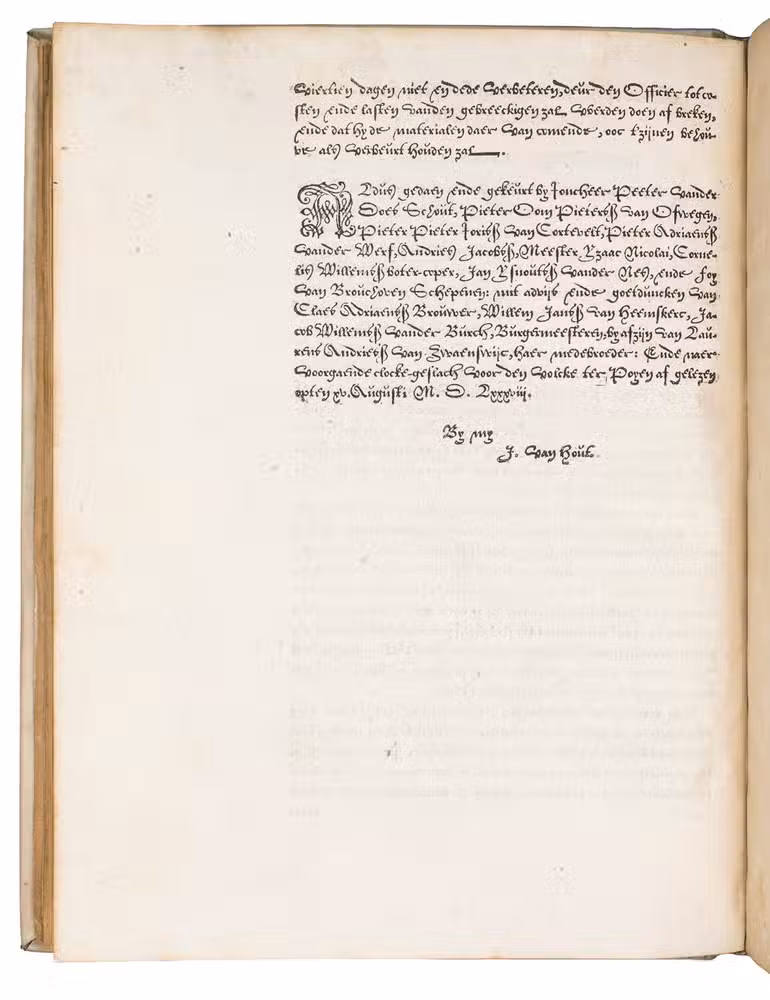 viertien dagen niet en dede verbeteren, deur den Officier tot co-
sten ende lasten vanden gebreeckigen zal werden doen af breken,
ende dat hy de materialen daer van comende, ooc t'zijnen behou-
ve als verbeurt houden zal.
ALdus gedaen ende gekeurt by Joncheer Peeter vander
Does Schout, Pieter Oom Pietersz van Ofwegen,
Pieter Pieter Jorisz van Cortevelt, Pieter Adriaensz
vander Werf, Andries Jacobsz, Meester Yzaac Nicolai, Corne-
lis Willemsz boter-coper, Jan Ysnoutsz vander Nes, ende Foy
van Brouchoven Schepenen: mit advijs ende goetduncken van
Claes Adriaensz Brouwer, Willem Jansz van Heemskerc, Ja-
cob Willemsz vander Burch, Burgermeesteren, by afzijn van Lau-
rens Andriesz van Zwaenswijc, haer medebroeder: Ende naer
voorgaende clocke-geslach voor den volcke ter Poyen af gelezen
opten xv. Augusti M. D. Lxxxviii.
By my
J. van Hout.